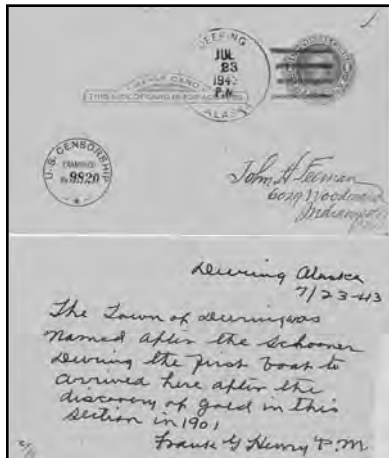 DEERING
JUL
23
1943
P.M.
ALASKA
THIS SIDE OF CARD IS FOR ADDRESS
U.S. CENSORSHIP
EXAMINED
By 9820
John H
6029 Woodmand
Deering Alaska
7/23-43
The Town of Deering was
named after the Schooner
Deering the first boat to
arrived here after the
discovery of gold in this
section in 1901
Frank G Henry P.M.